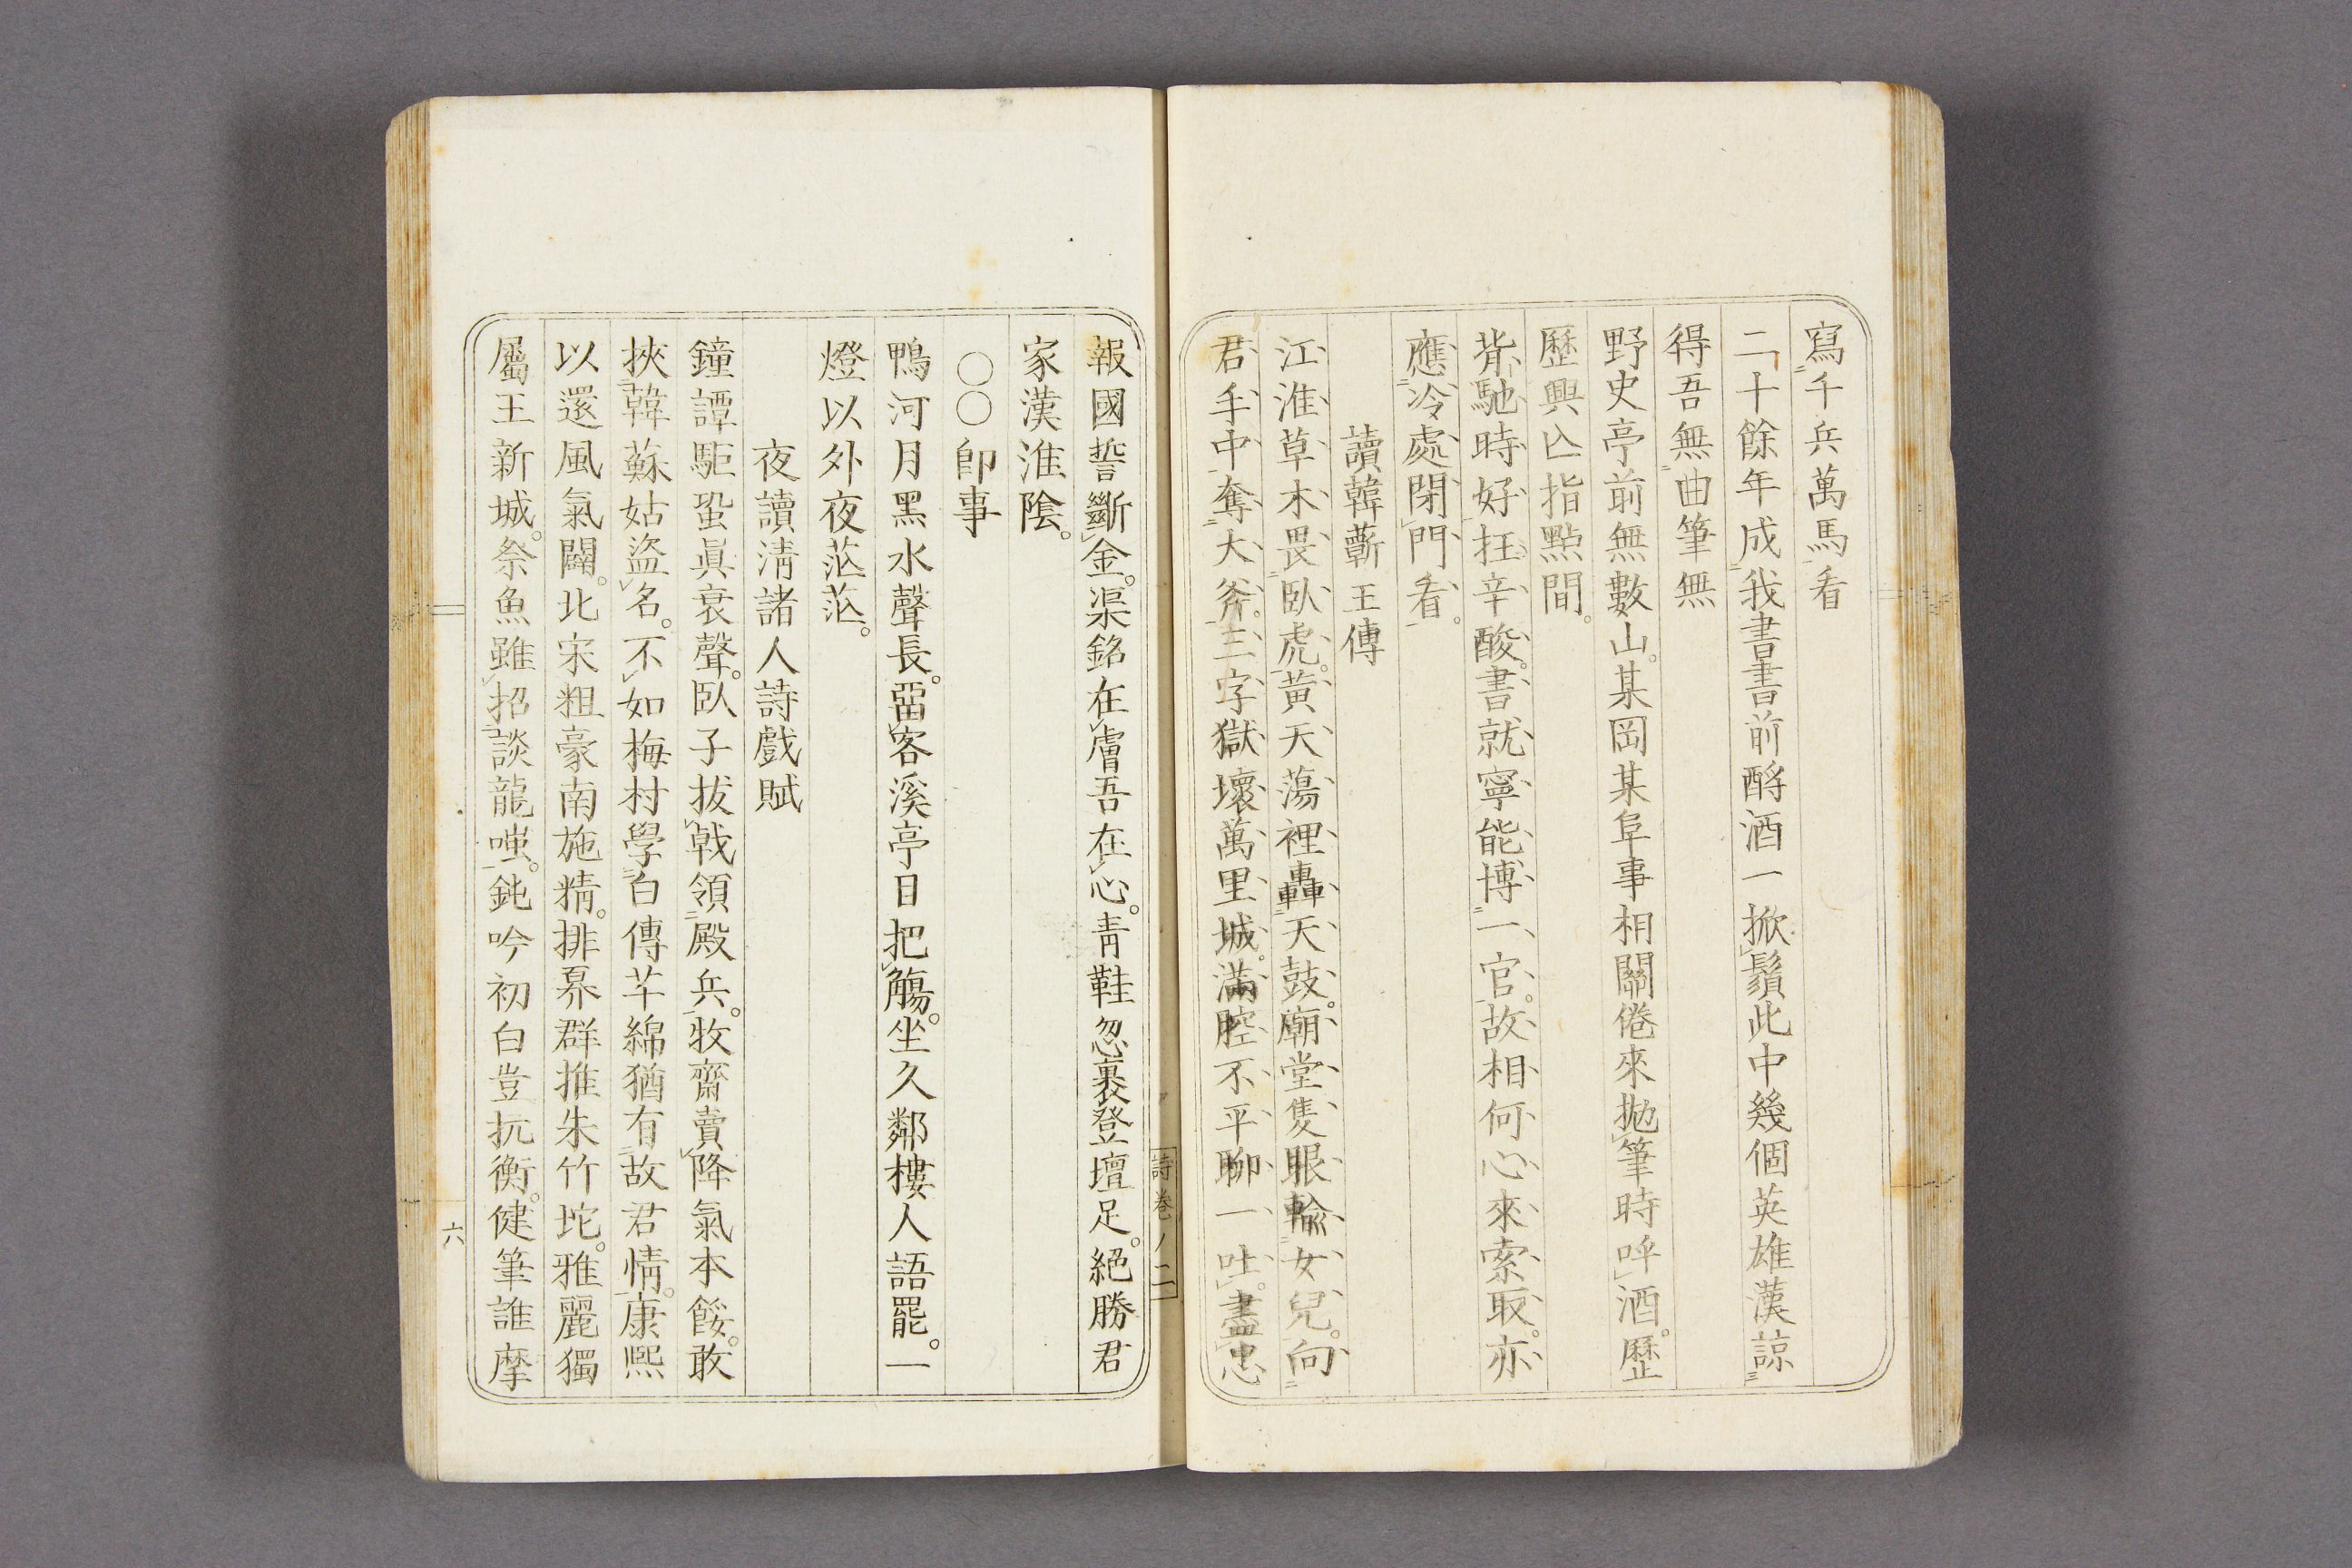 寫千兵萬馬看
二十餘年成我書書前酹酒一掀鬚此中幾個英雄漢諒
得吾無曲筆無
野史亭前無數山。某岡某阜事相關倦來拋筆時呼酒。歷
歷興亾指點間。
背馳時好抂辛酸。書就寧能博一官。故相何心來索取。亦
應冷處閉門看。
讀韓蘄王傳
江淮草木畏臥虎。黄天蕩裡轟天鼓。廟堂隻眼輸女兒。向
君手中奪大斧。三字獄壞萬里城。滿腔不平聊一吐。盡忠
報國誓斷金。渠銘在膚吾在心。靑鞋忽裹登壇足。絕勝君
家漢淮陰。
〇〇卽事
鴨河月黑水聲長。畱客溪亭目把觴。坐久鄰樓人語罷。一
燈以外夜茫茫。
夜讀淸諸人詩戲賦
鐘譚駏蛩眞衰聲。臥子拔戟領殿兵。牧齋賣降氣本餒。敢
挾韓蘇姑盜名。不如梅村學白傳芊綿猶有故君情。康熙
以還風氣闢。北宋粗豪南施精。排奡群推朱竹坨。雅麗獨
屬王新城。祭魚雖招談龍嗤。鈍吟初白豈抗衡。健筆誰摩
詩巻ノ二
六